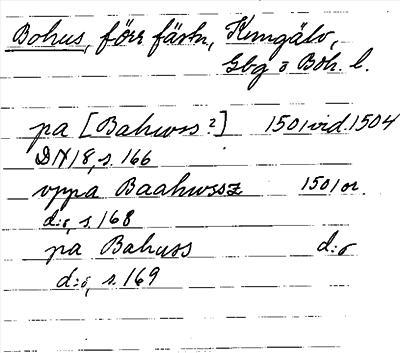 Bohus, förr fästn., Kungälv,
Gbg o Boh. l.
pa [Bahwss?] 1501 vid. 1504
DN 18, s. 166
vppa Baahwssz 1501 or.
d:o, s. 168
pa Bahuss d:o
d:o, s. 169